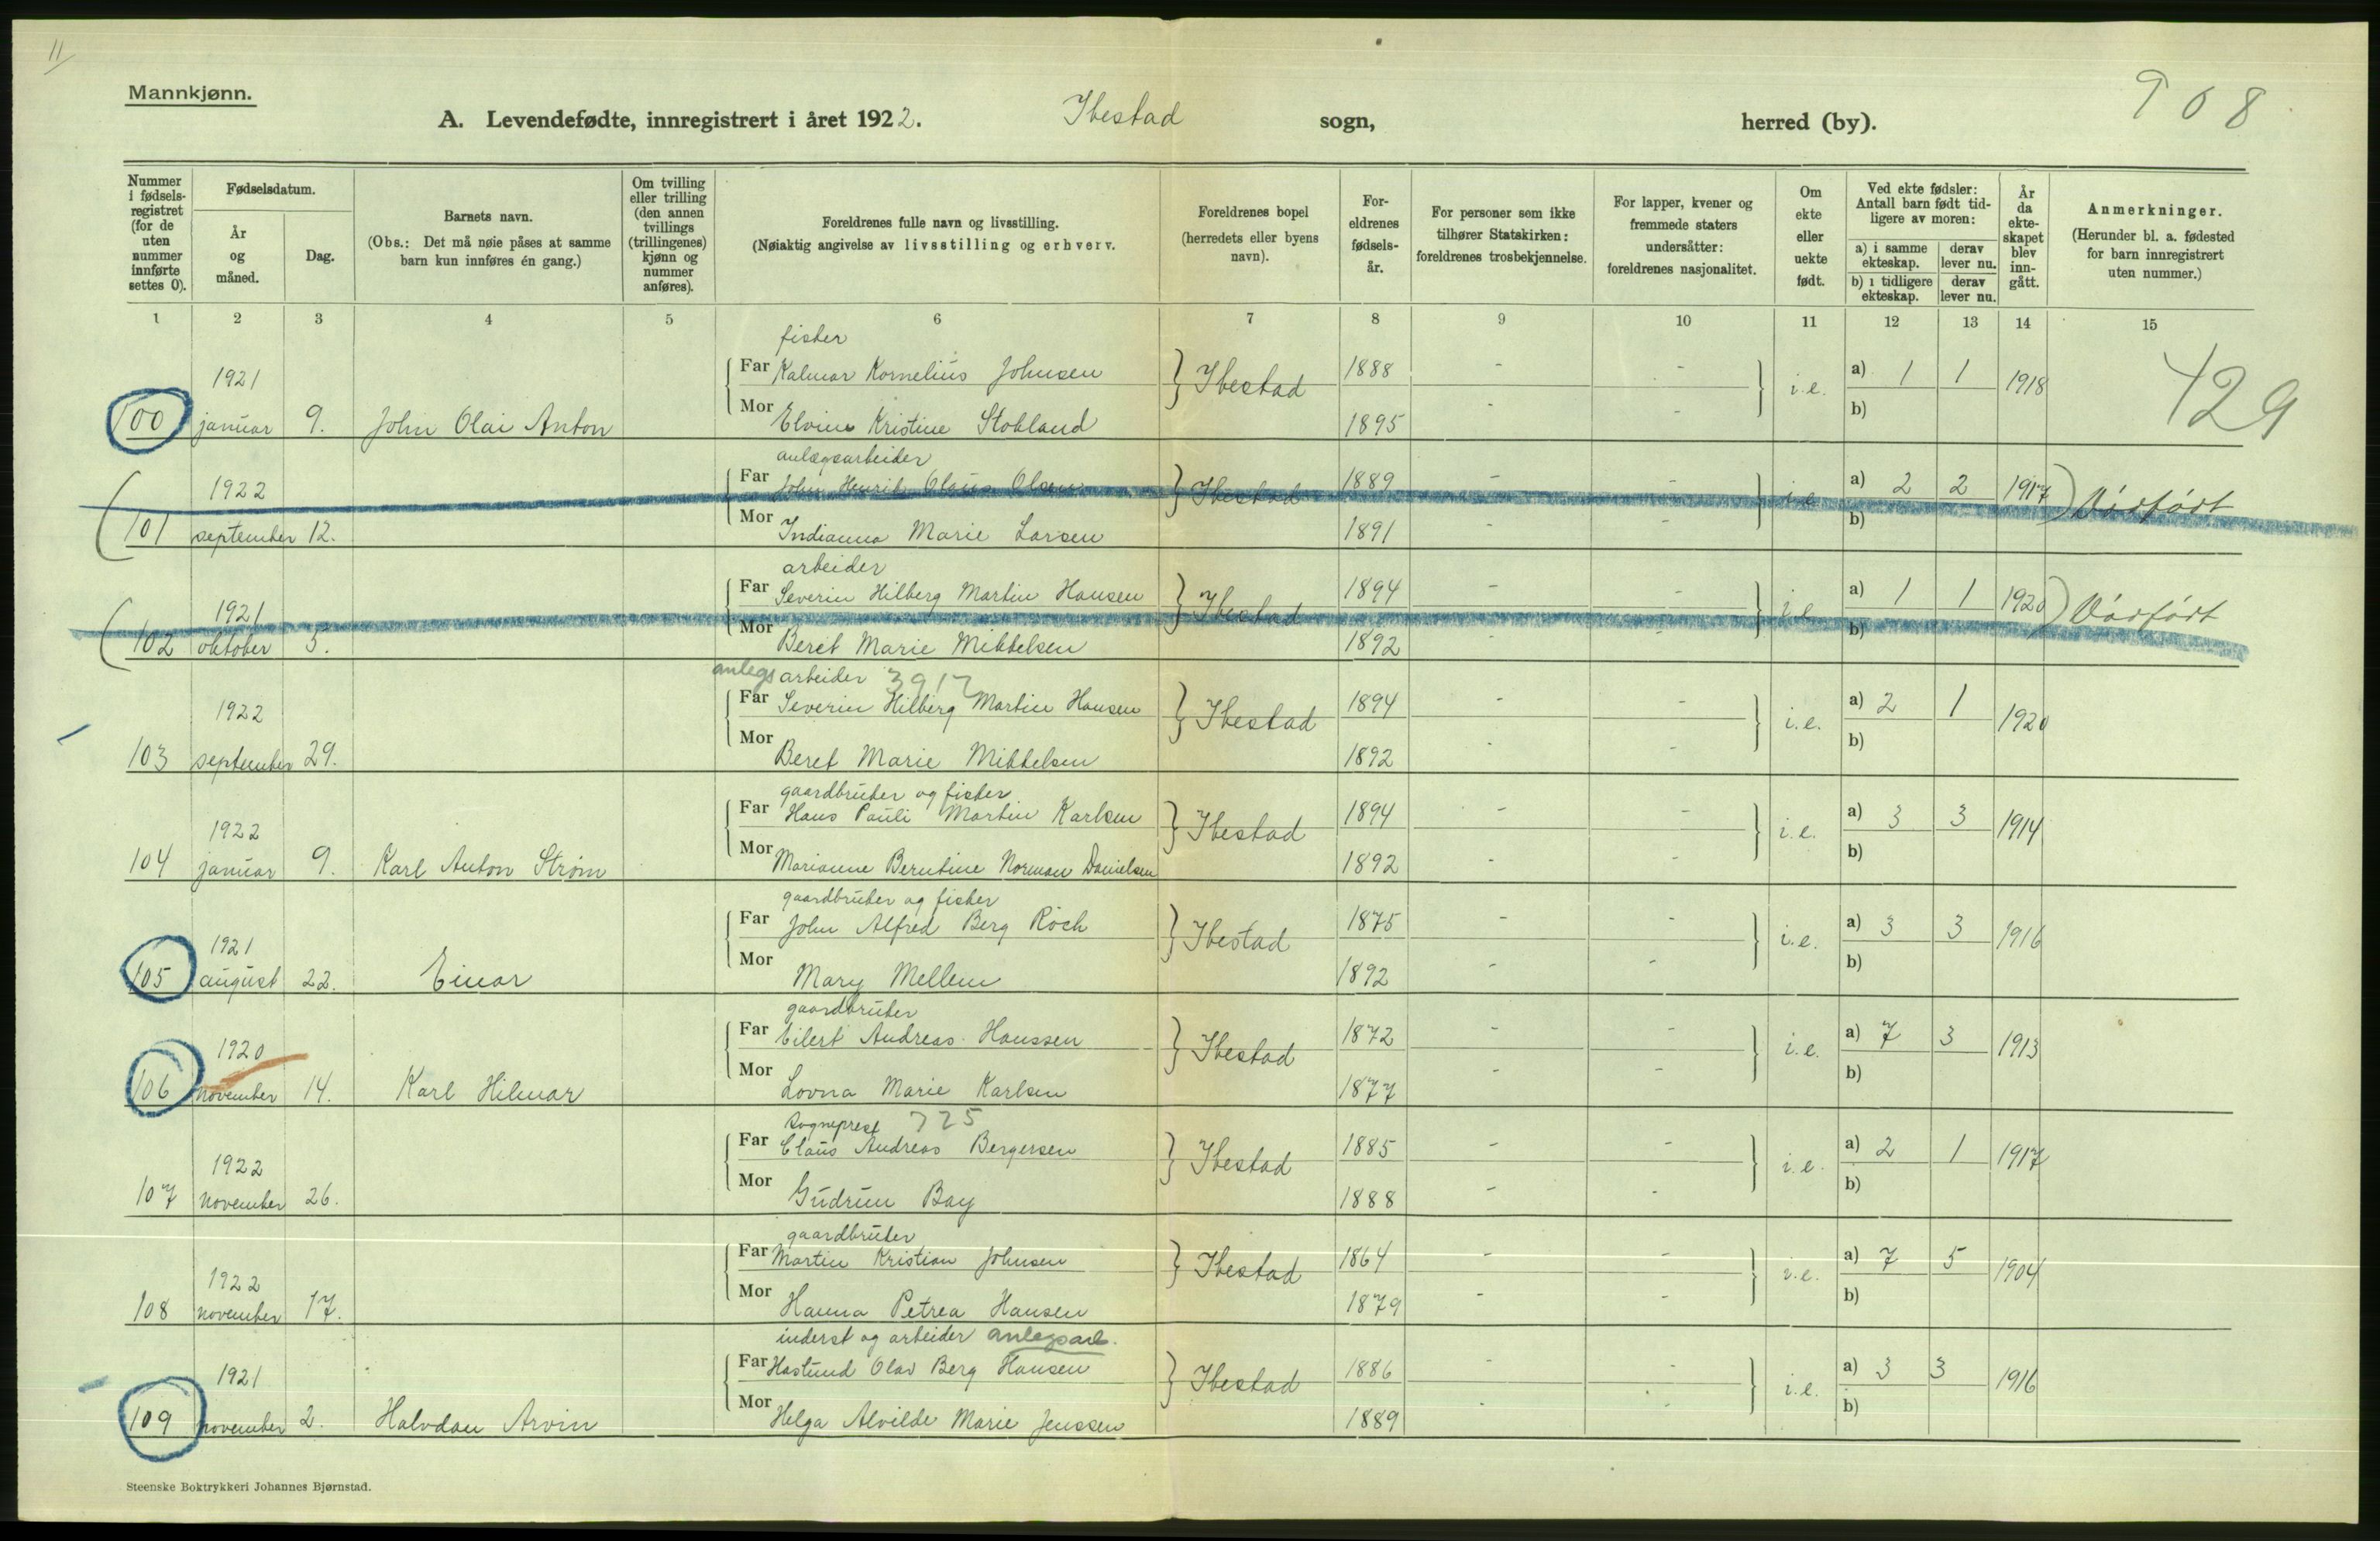 11
Mannkjønn.
A. Levendefødte, innregistrert i året 1922. Ibestad sogn, herred (by).
908
Nummer i fødselsregistret (for de uten nummer innførte settes 0).
Fødselsdatum.
År og måned.
Dag.
Barnets navn.
(Obs.: Det må nøie påses at samme barn kun innføres én gang.)
Om tvilling eller trilling (den annen tvillings (trillingenes) kjønn og nummer anføres).
Foreldrenes fulle navn og livsstilling.
(Nøiaktig angivelse av livsstilling og erhverv.
Foreldrenes bopel (herredets eller byens navn).
Foreldrenes fødselsår.
For personer som ikke tilhører Statskirken: foreldrenes trosbekjennelse.
For lapper, kvener og fremmede staters undersåtter: foreldrenes nasjonalitet.
Om ekte eller uekte født.
Ved ekte fødsler: Antall barn født tidligere av moren:
a) i samme ekteskap. derav lever nu.
b) i tidligere ekteskap. derav lever nu.
År da ekteskapet blev inngått.
Anmerkninger.
(Herunder bl. a. fødested for barn innregistrert uten nummer.)
1 2 3 4 5 6 7 8 9 10 11 12 13 14 15
fisker
1921 Far Kalmar Kornelius Johnsen Ibestad 1888 - - i.e. a) 1 1 1918 429
100 januar 9. John Olai Anton Mor Elvine Kristine Stokland 1895 - - b)
anlægsarbeider
1922 Far John Henrik Olaus Olsen Ibestad 1889 - - i.e. a) 2 2 1917 Dødfødt
101 september 12. Mor Indianna Marie Larsen 1891 - - b)
arbeider
1921 Far Severin Hilberg Martin Hansen Ibestad 1894 - - i.e. a) 1 1 1920 Dødfødt
102 oktober 5. Mor Beret Marie Mikkelsen 1892 - - b)
anlegs arbeider 3917
1922 Far Severin Hilberg Martin Hansen Ibestad 1894 - - i.e. a) 2 1 1920
103 september 29. Mor Beret Marie Mikkelsen 1892 - - b)
gaardbruker og fisker
1922 Far Hans Pauli Martin Karlsen Ibestad 1894 - - i.e. a) 3 3 1914
104 januar 9. Karl Anton Strøm Mor Marianne Berntine Norman Danielsen 1892 - - b)
gaardbruker og fisker
1921 Far John Alfred Berg Röch Ibestad 1875 - - i.e. a) 3 3 1916
105 august 22. Einar Mor Mary Mellem 1892 - - b)
gaardbruker
1920 Far Eilert Andreas Hanssen Ibestad 1872 - - i.e. a) 7 3 1913
106 november 14. Karl Hilmar Mor Lovna Marie Karlsen 1877 - - b)
sogneprest 725
1922 Far Claus Andreas Bergersen Ibestad 1885 - - i.e. a) 2 1 1917
107 november 26. Mor Gudrun Bay 1888 - - b)
gaardbruker
1922 Far Martin Kristian Johnsen Ibestad 1864 - - i.e. a) 7 5 1904
108 november 17. Mor Hanna Petrea Hansen 1879 - - b)
inderst og arbeider anlegsarb.
1921 Far Hastund Olav Berg Hansen Ibestad 1886 - - i.e. a) 3 3 1916
109 november 2. Halvdan Arvin Mor Helga Alvilde Marie Jenssen 1889 - - b)
Steenske Boktrykkeri Johannes Bjørnstad.